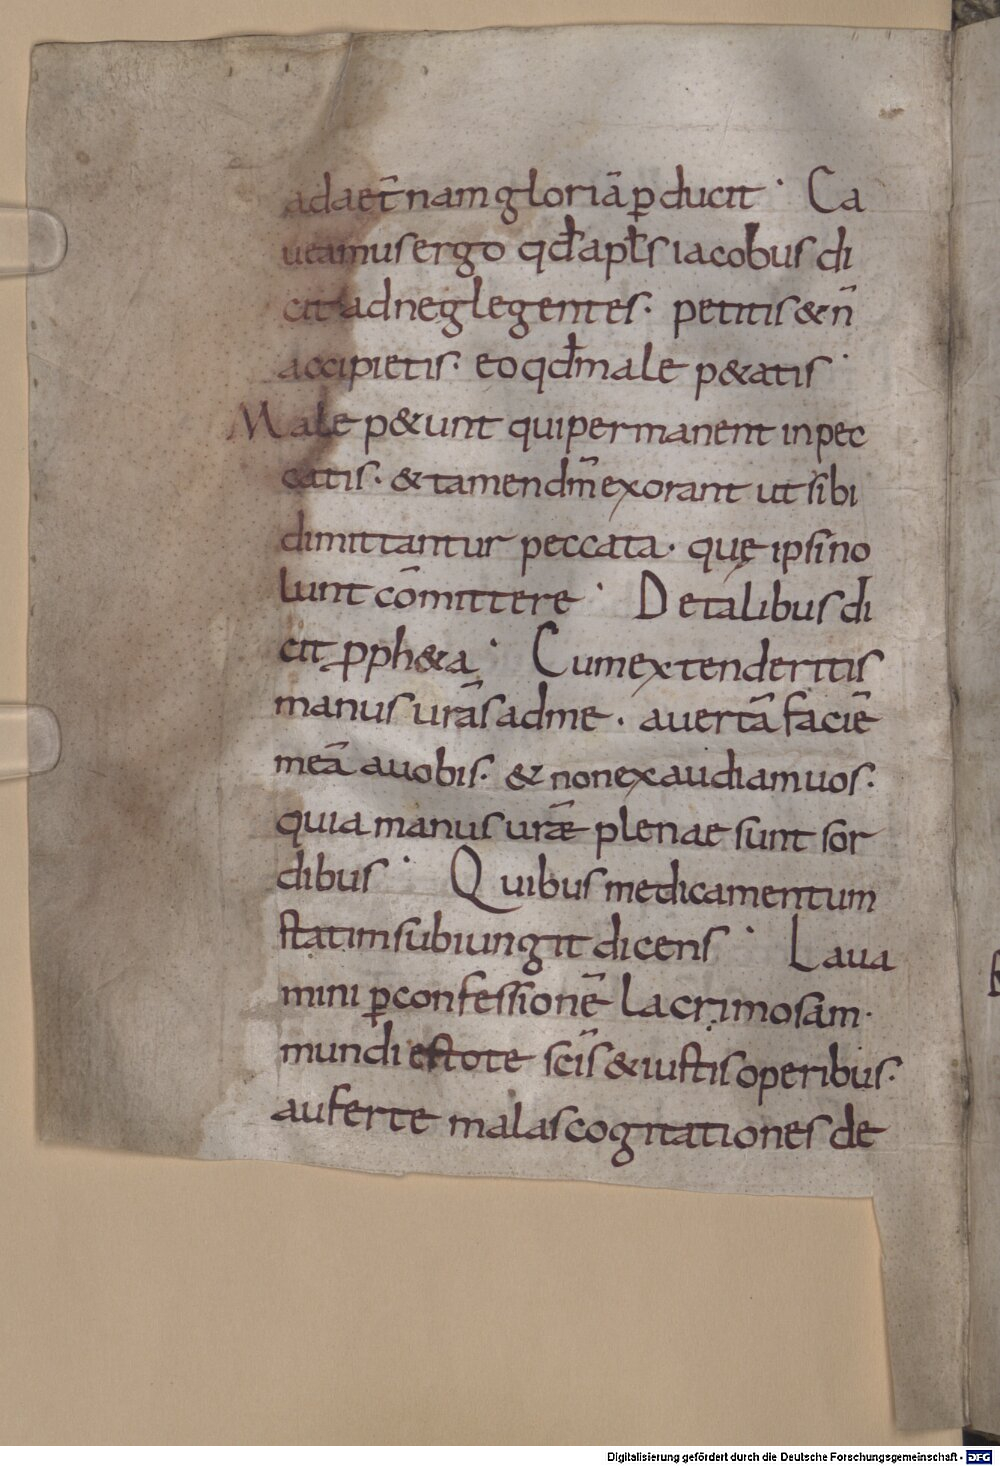 ad aet̄nam gloriā ꝑducit · Ca
ueamus ergo qđ aplꝉs iacobus di
cit ad neglegentes · petitis & n̄
accipietis · eo qđ male p&atis ·
Male p&unt qui permanent in pec
catis · & tamen dm̄ exorant ut sibi
dimittantur peccata · quę ipsi no
lunt cōmittere · De talibus di
cit ꝓph&a · Cum extenderitis
manus urās ad me · auertā faciē
meā a uobis · & non exaudiam uos ·
quia manus urāe plenae sunt sor
dibus · Quibus medicamentum
statim subiungit dicens · Laua
mini ꝑ confessionē lacrimosam ·
mundi estote sc̄is & iustis operibus ·
auferte malas cogitationes de
Digitalisierung gefördert durch die Deutsche Forschungsgemeinschaft - DFG